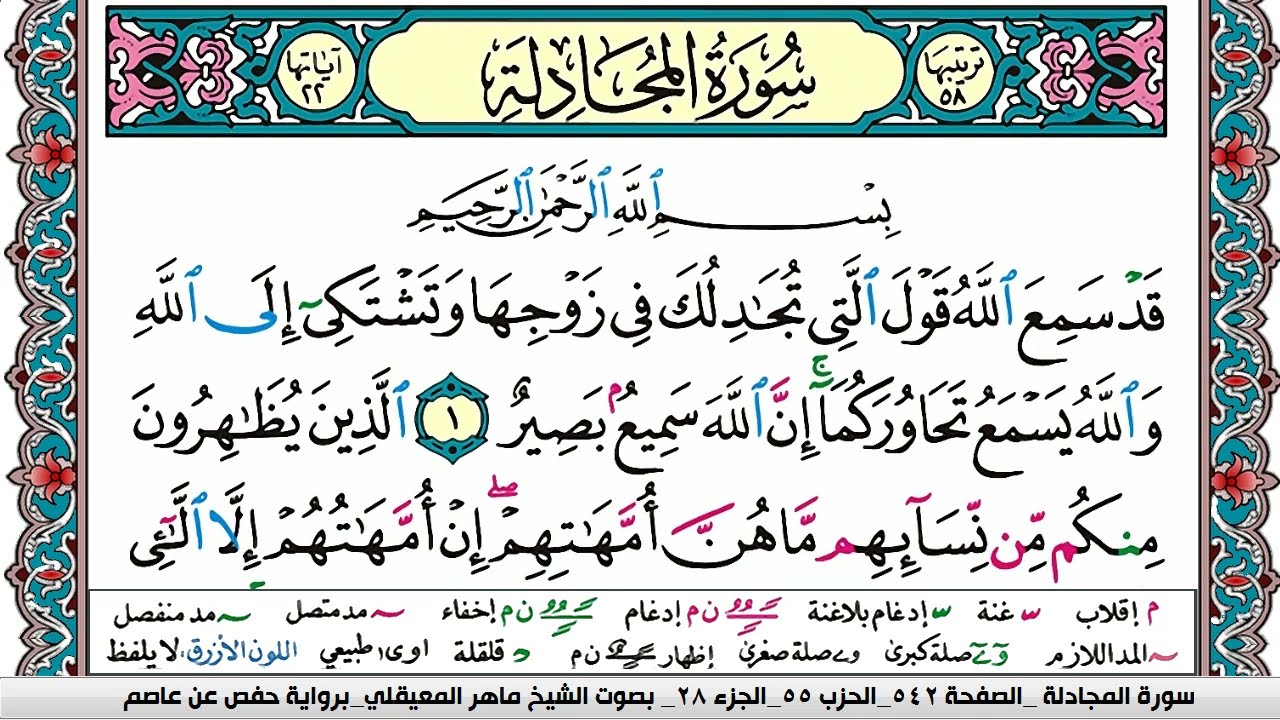 ترتيبها ٥٨
سُورَةُ المُجَادِلَةِ
آياتها ٢٢
بِسْمِ ٱللَّهِ ٱلرَّحْمَٰنِ ٱلرَّحِيمِ
قَدْ سَمِعَ ٱللَّهُ قَوْلَ ٱلَّتِي تُجَٰدِلُكَ فِي زَوْجِهَا وَتَشْتَكِيٓ إِلَى ٱللَّهِ
وَٱللَّهُ يَسْمَعُ تَحَاوُرَكُمَآ ۚ إِنَّ ٱللَّهَ سَمِيعُۢ بَصِيرٌ ١ ٱلَّذِينَ يُظَٰهِرُونَ
مِنكُم مِّن نِّسَآئِهِم مَّا هُنَّ أُمَّهَٰتِهِمْ ۖ إِنْ أُمَّهَٰتُهُمْ إِلَّا ٱلَّٰٓـِٔي
م إقلاب س غنة س إدغام بلاغنة ن م إدغام ن م إخفاء مد متصل مد منفصل
المد اللازم صلة كبرى و ے صلة صغرى إظهار ن م د قلقلة اوى طبيعي اللون الأزرق، لا يلفظ
سورة المجادلة _الصفحة ٥٤٢_الحزب ٥٥_الجزء ٢٨_ بصوت الشيخ ماهر المعيقلي_برواية حفص عن عاصم